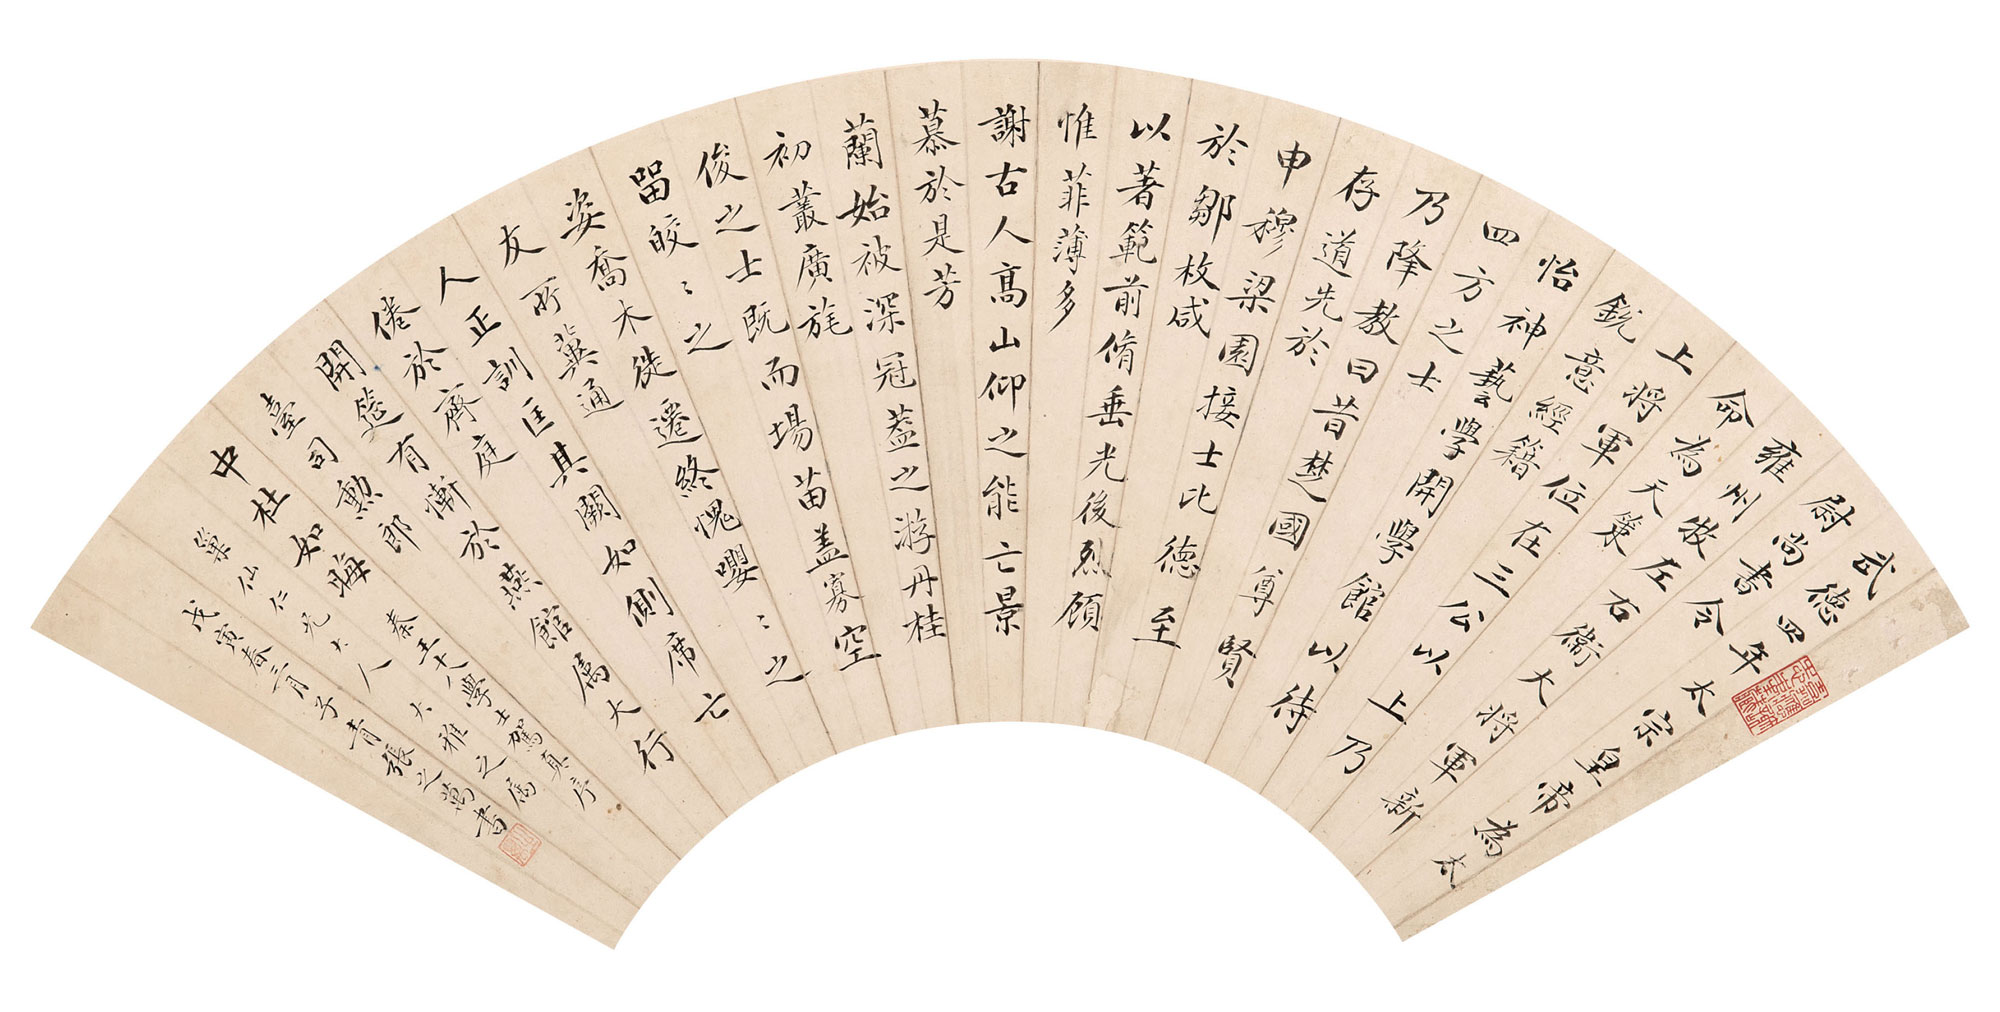 武德四年太宗皇帝為太
尉尚書令
雍州牧左右衞大将軍新
命為天策
上将軍位在三公以上乃
鋭意經籍
怡神藝學開學館以待
四方之士
乃降教曰昔楚國尊賢
存道先於
申穆梁園接士比德至
於鄒枚咸
以著範前脩垂光後烈顧
惟菲薄多
謝古人高山仰之能亡景
慕於是芳
蘭始被深冠蓋之游丹桂
初叢廣旄
俊之士既而場苗蓋寡空
留皎〻之
姿喬木徙遷終愧嚶〻之
友所冀通
人正訓匡其闕如側席亡
倦於齊庭
開筵有慚於燕館屬大行
臺司勲郎
中杜如晦
秦王十八學士寫真序
仙仁兄大人大雅之屬
戊寅春三月子青張之萬書